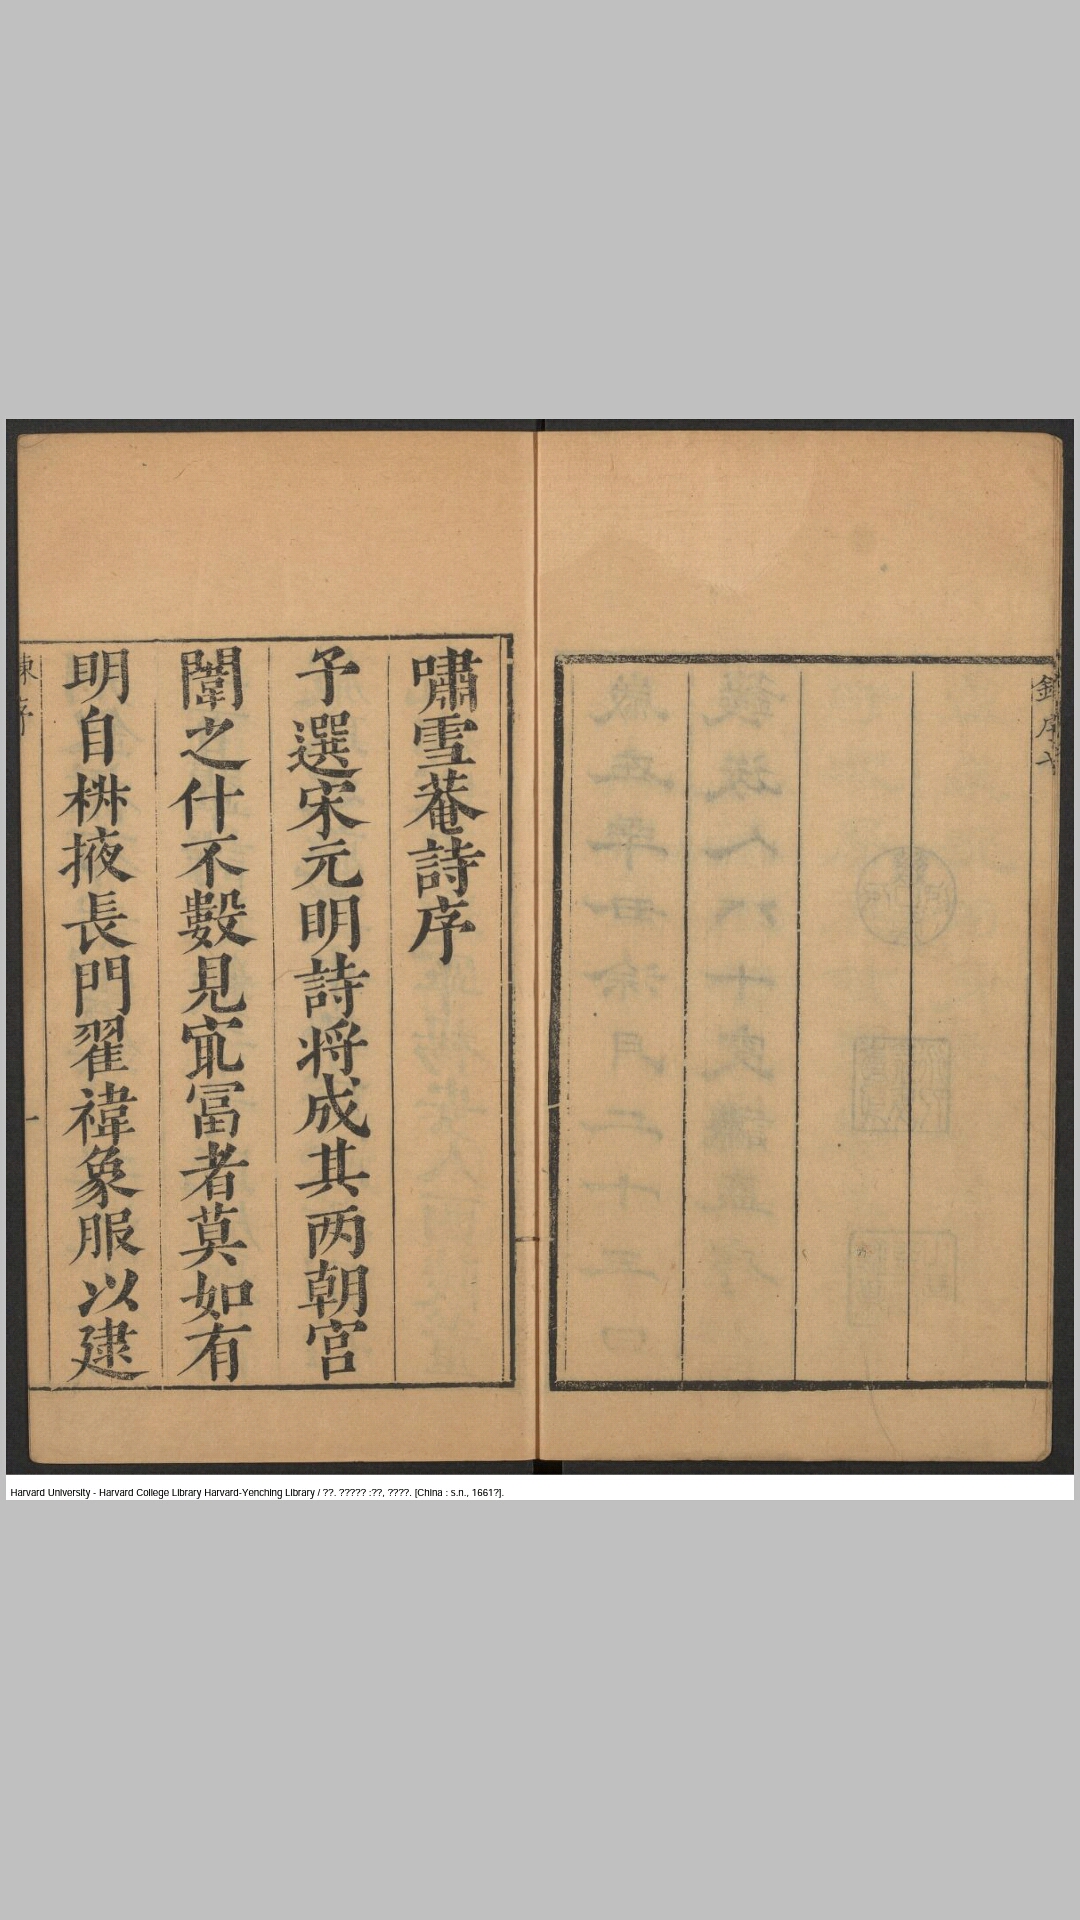 嘯雪菴詩序
予選宋元明詩将成其两朝宮
闈之什不數見㝡冨者莫如有
明自椒掖長門翟褘象服以逮
序
一
Harvard University - Harvard College Library Harvard-Yenching Library / ??. ????? :??, ????. [China : s.n., 1661?].